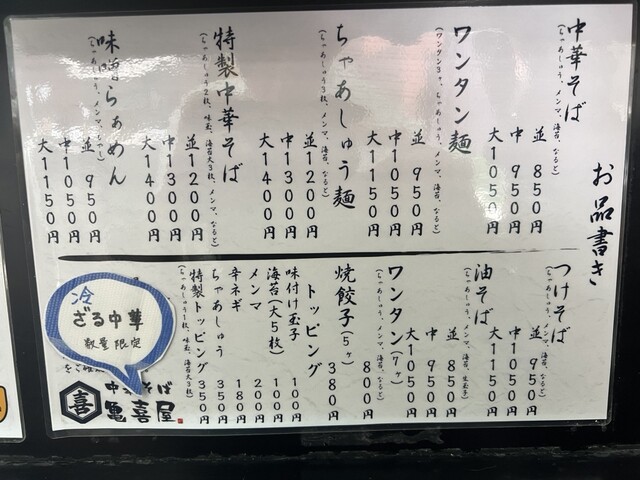 お品書き
中華そば
(ちゃあしゅう、メンマ、海苔、なると)
並 850円
中 950円
大1050円
ワンタン麺
(ワンタン3ヶ、ちゃあしゅう、メンマ、海苔、なると)
並 950円
中1050円
大1150円
ちゃあしゅう麺
(ちゃあしゅう5枚、メンマ、海苔、なると)
並1200円
中1300円
大1400円
特製中華そば
(ちゃあしゅう2枚、味玉、海苔大3枚、メンマ、なると)
並1200円
中1300円
大1400円
味噌らぁめん
並 950円
中1050円
大1150円
つけそば
(ちゃあしゅう、メンマ、海苔、なると)
並 950円
中1050円
大1150円
油そば
(ちゃあしゅう、メンマ、海苔、生玉子)
並 850円
中 950円
大1050円
ワンタン(7ヶ)
(ちゃあしゅう、メンマ、海苔、なると)
800円
焼餃子(5ヶ)
380円
トッピング
味付け玉子 100円
海苔(大5枚) 100円
メンマ 200円
辛ネギ 180円
ちゃあしゅう 350円
特製トッピング 350円
(ちゃあしゅう1枚、味玉、海苔大3枚)
冷
ざる中華
数量限定
中華そば
喜
亀喜屋